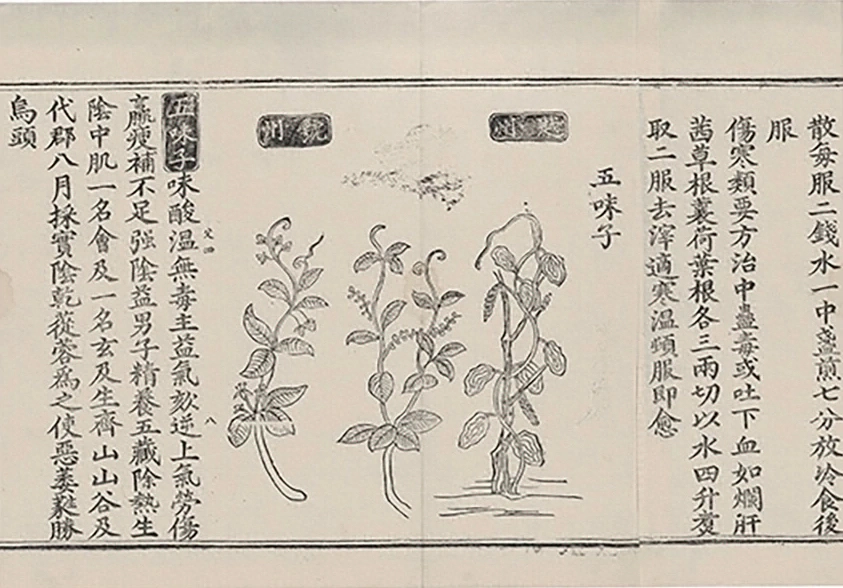 散每服二錢水一中盞煎七分放冷食後
服
傷寒類要方治中蠱毒或吐下血如爛肝
茜草根蘘荷葉根各三兩切以水四升煑
取二服去滓適寒溫頓服即愈
五味子
越州
虢州
五味子味酸溫無毒主益氣欬逆上氣勞傷
羸瘦補不足强陰益男子精養五藏除熱生
陰中肌一名會及一名玄及生齊山山谷及
代郡八月採實陰乾蓯蓉爲之使惡萎蕤勝
烏頭